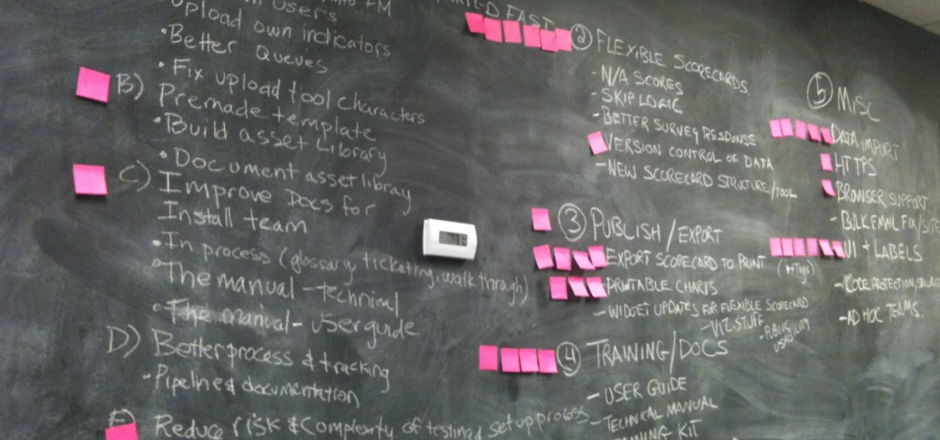 Users
FM
Upload own indicators
• Better Queues
• Fix upload tool characters
B) Premade template
• Build asset Library
• Document asset library
C) Improve Docs for
Install team
• In process (glossary, ticketing, walk through)
• The manual - Technical
• The manual - User guide
D) Better process & tracking
- Pipeline & documentation
E) Reduce risk & Complexity of testing & setup process
FAST
② FLEXIBLE SCORECARDS
- N/A SCORES
- SKIP LOGIC
- BETTER SURVEY RESPONSE
VERSION CONTROL OF DATA
- NEW SCORECARD STRUCTURE/TOOL
③ PUBLISH / EXPORT
EXPORT SCORECARD TO PRINT
PRINTABLE CHARTS
- WIDGET UPDATES FOR FLEXIBLE SCORECARD
- VIZ. STUFF
④ TRAINING/DOCS
- USER GUIDE
- TECHNICAL MANUAL
KIT
⑤ MISC
DATA IMPORT
HTTPS
BROWSER SUPPORT
- BULK EMAIL FOR
UI + LABELS
- CODE PROTECTION
- AD HOC TEAMS